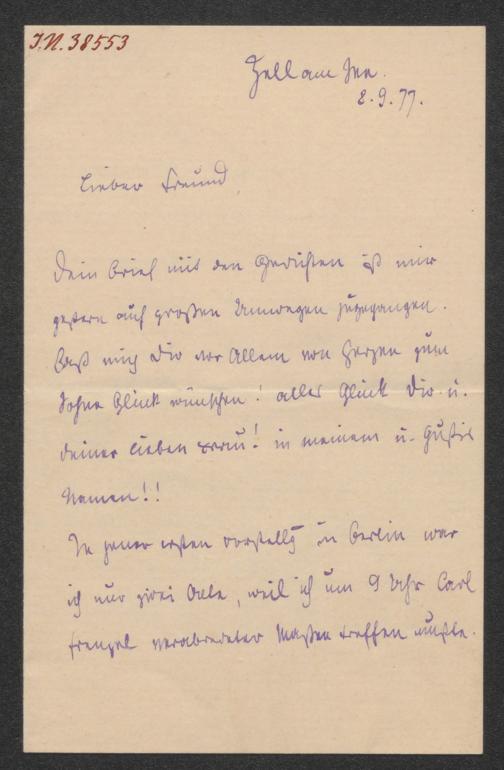 J.N. 38553
Zell am See.
2.9.77.
Lieber Freund,
Dein Brief mit den Gedichten ist mir
gestern auf großen Umwegen zugegangen.
Laß mich Dir vor Allem von Herzen zum
Sohne Glück wünschen! alles Glück Dir u.
deiner lieben Frau! in meinem u. Gustis
Namen!!
In jener ersten Vorstellg in Berlin war
ich nur zwei Akte, weil ich um 9 Uhr Carl
Frenzel verabredeter Maßen treffen mußte.